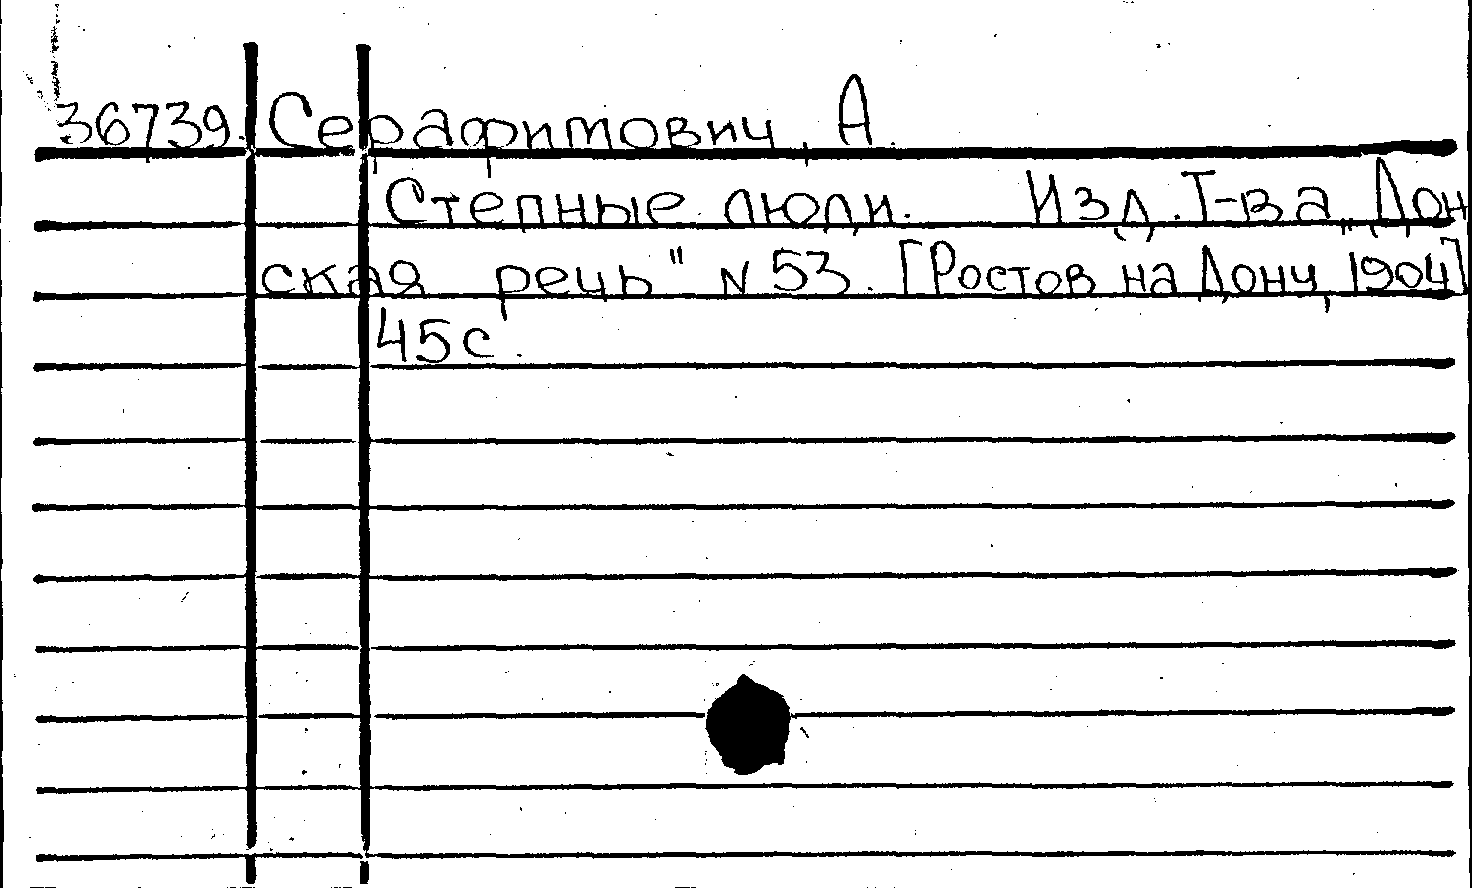 36739. Серафимович, А.
Степные люди. Изд. Т-ва „Дон
ская речь" N 53. [Ростов на Дону, 1904]
45 с.